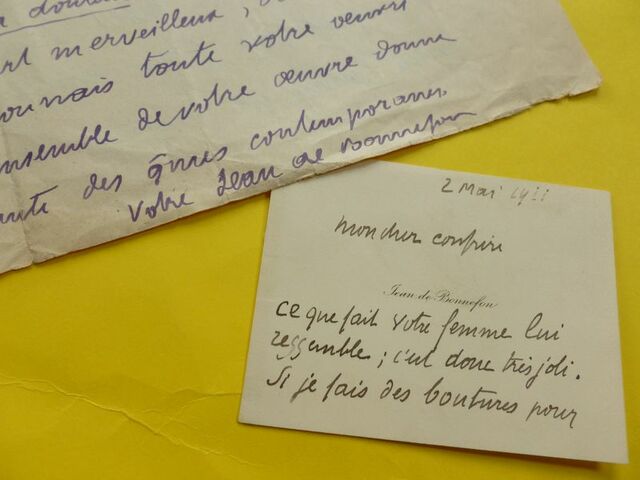 merveilleux
toute votre oeuvre
ensemble de votre oeuvre donne
des âmes contemporaines
Votre Jean de Bonnefon
2 Mai
mon cher confrère
Jean de Bonnefon
ce que fait votre femme lui
ressemble ; c'est donc très joli.
Si je fais des boutures pour